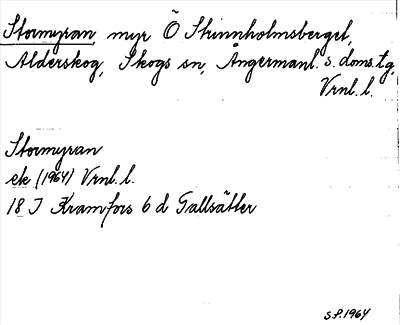 Stormyran, myr Ö Stinnholmsberget,
Alderskog, Skogs sn, Ångermanl. s. doms. tg,
Vrnl. l.
Stormyran
ek (1964) Vrnl. l.
18 J Kramfors 6 d Tallsätter
S.P. 1964